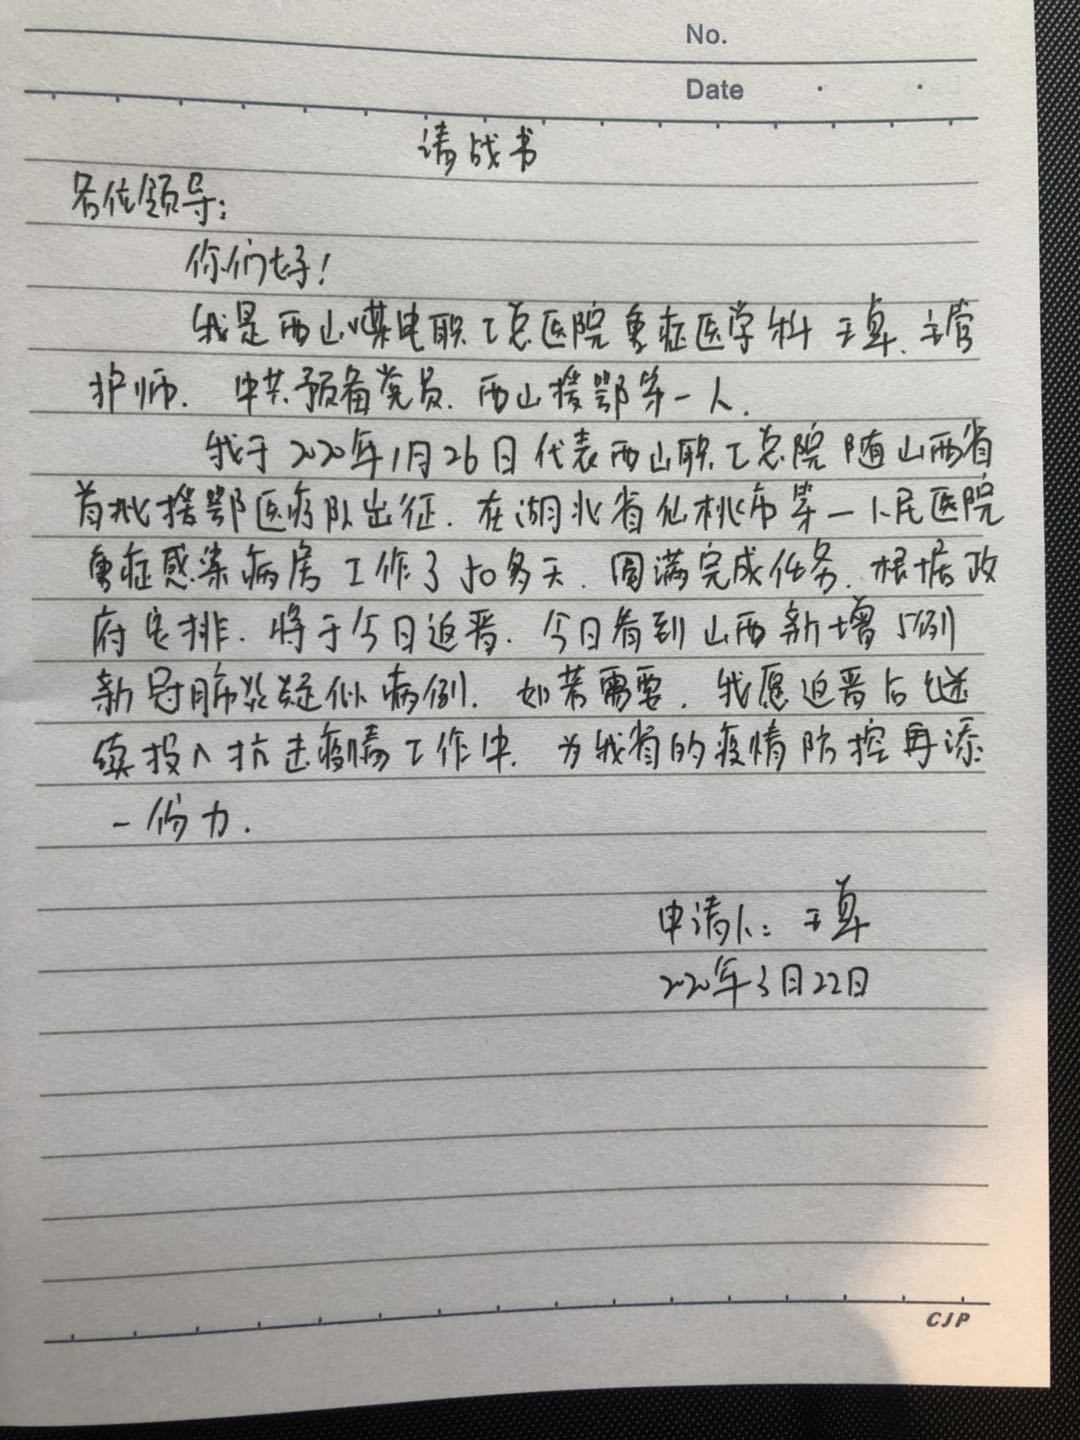 No.
Date
请战书
各位领导：
你们好！
我是西山煤电职工总医院重症医学科王卓、主管
护师、中共预备党员、西山援鄂第一人.
我于2020年1月26日代表西山职工总院随山西省
首批援鄂医疗队出征.在湖北省仙桃市第一人民医院
重症感染病房工作了50多天.圆满完成任务.根据政
府安排.将于今日返晋.今日看到山西新增5例
新冠肺炎疑似病例.如若需要.我愿返晋后继
续投入抗击疫情工作中.为我省的疫情防控再添
一份力.
申请人：王卓
2020年3月22日
CJP